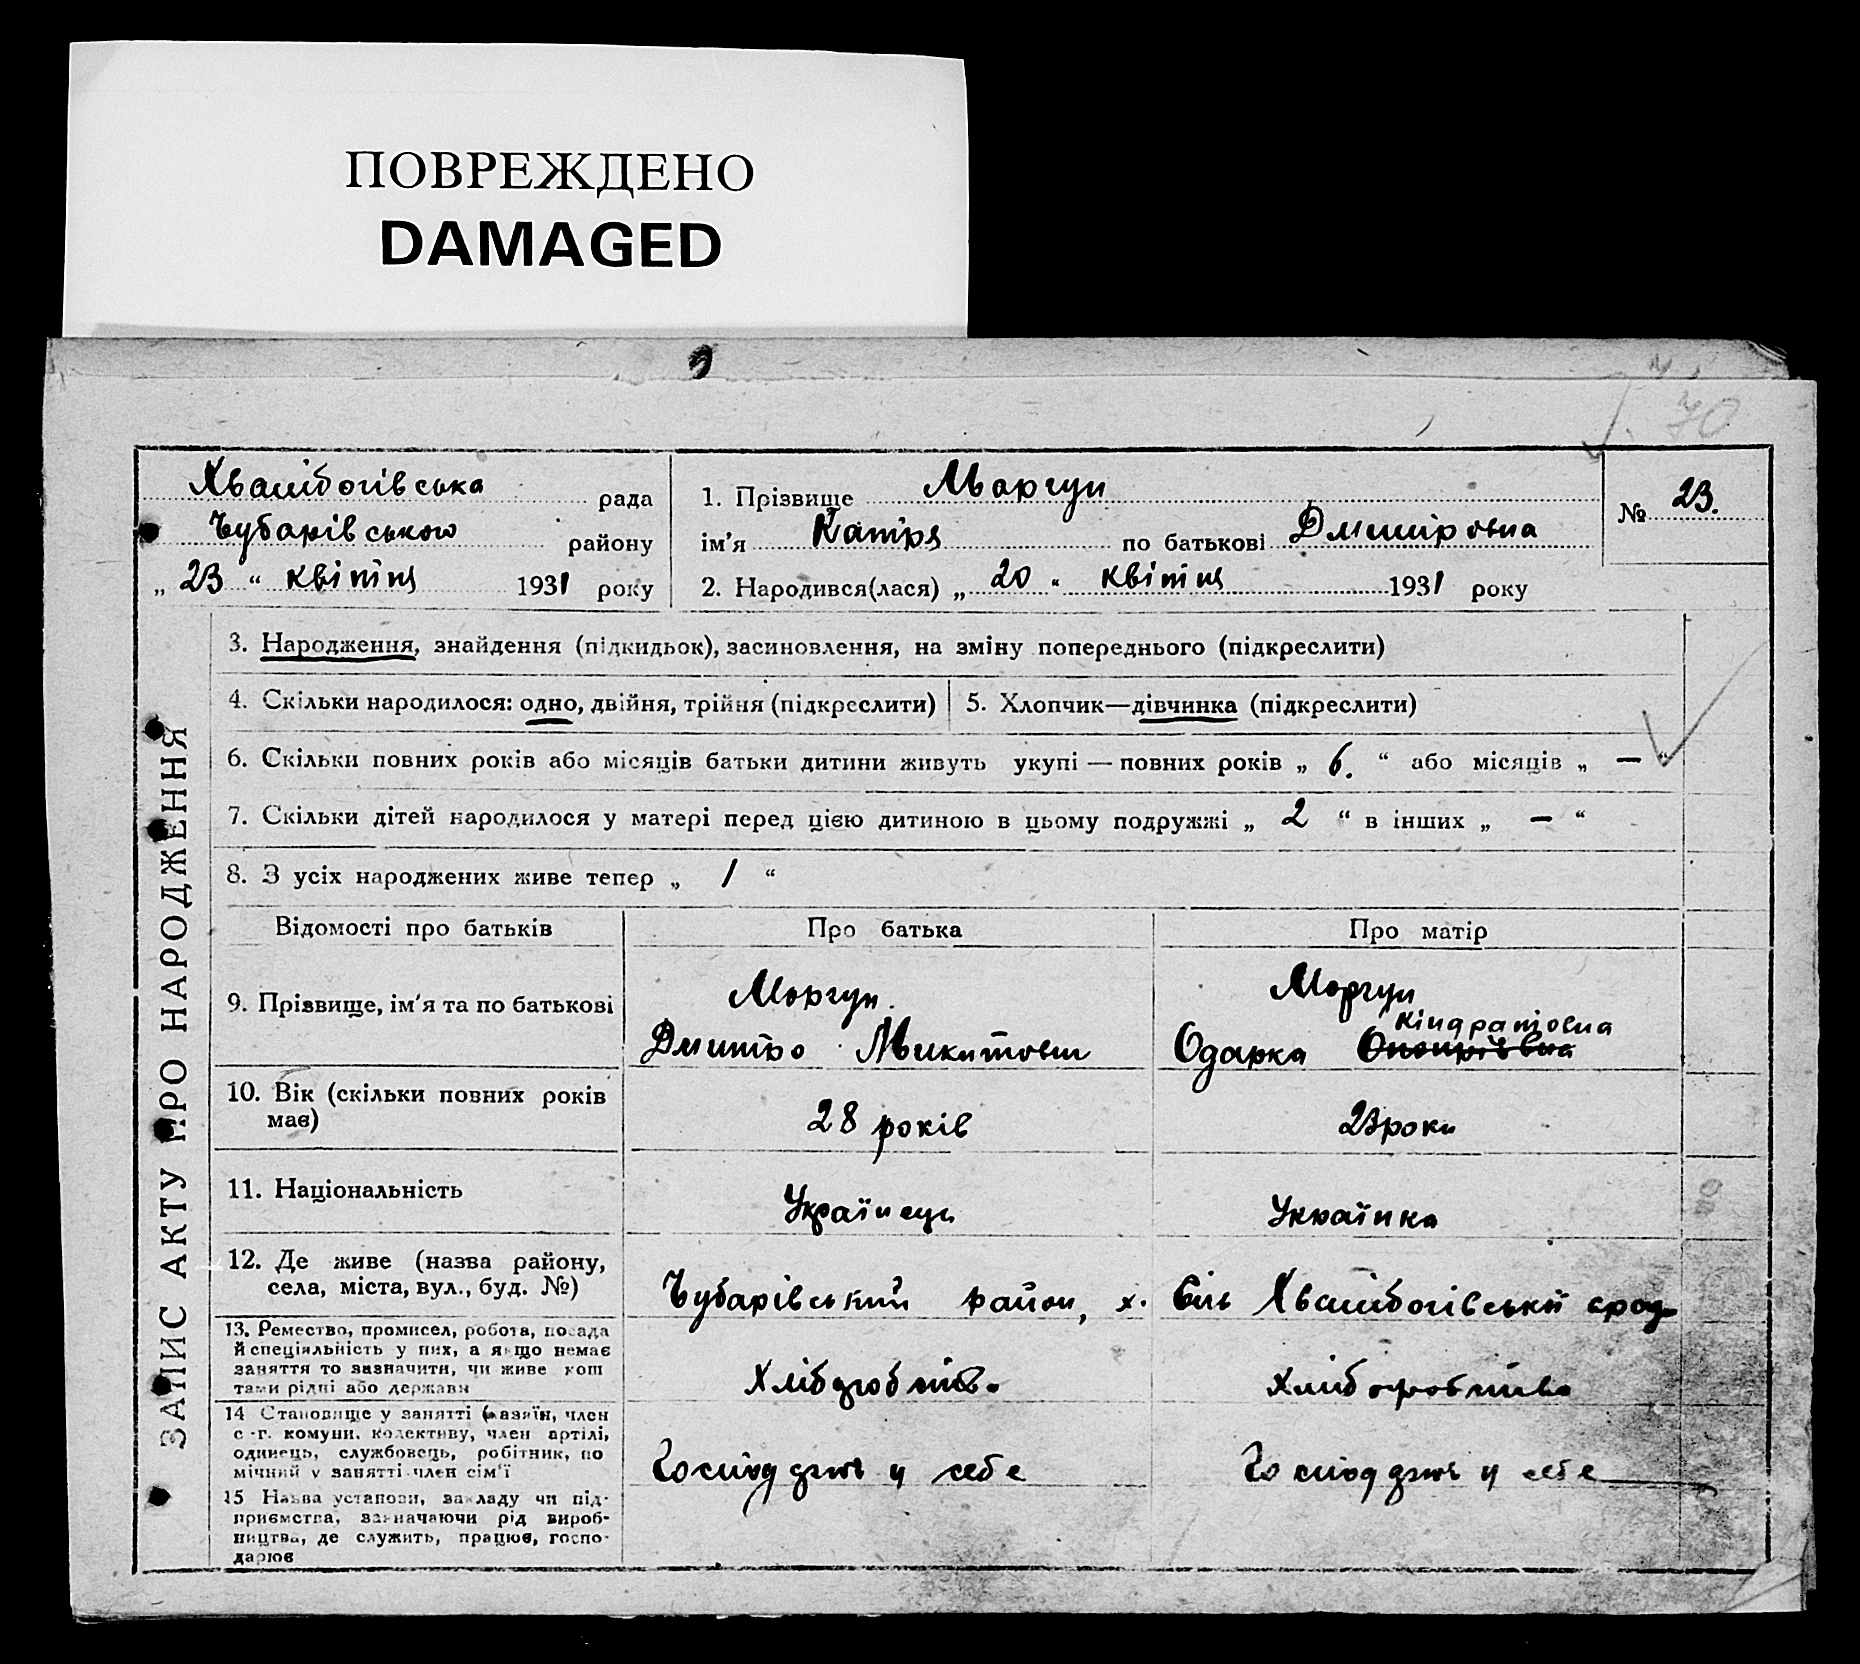 ПОВРЕЖДЕНО
DAMAGED
70
Хвалибогівська рада
Чубарівського району
„ 23 “ квітня 1931 року
1. Прізвище Моргун
ім'я Катря по батькові Дмитровна
2. Народився(лася) „ 20 “ квітня 1931 року
№ 23.
ЗАПИС АКТУ ПРО НАРОДЖЕННЯ
3. Народження, знайдення (підкидьок), засиновлення, на зміну попереднього (підкреслити)
4. Скільки народилося: одно, двійня, трійня (підкреслити)
5. Хлопчик—дівчинка (підкреслити)
6. Скільки повних років або місяців батьки дитини живуть укупі — повних років „ 6. “ або місяців „ — “
7. Скільки дітей народилося у матері перед цією дитиною в цьому подружжі „ 2 “ в інших „ — “
8. З усіх народжених живе тепер „ 1 “
Відомості про батьків Про батька Про матір
9. Прізвище, ім'я та по батькові
Моргун
Дмитро Микитович
Моргун
Кіндратовна
Одарка
10. Вік (скільки повних років
має)
28 років
23 роки
11. Національність
Українець
Українка
12. Де живе (назва району,
села, міста, вул., буд. №)
Чубарівський район, х. Хвалибогівської
13. Ремество, промисел, робота, посада
й спеціяльність у них, а якщо немає
заняття то зазначити, чи живе кош
тами рідні або держави
Хліборобство
Хліборобство
14 Становище у занятті (хазяїн, член
с.-г. комуни, колективу, член артілі,
одинець, службовець, робітник, по
мічний у занятті член сім'ї
Господарює у себе
Господарює у себе
15 Назва установи, закладу чи під-
приємства, зазначаючи рід вироб-
ництва, де служить, працює, госпо-
дарює